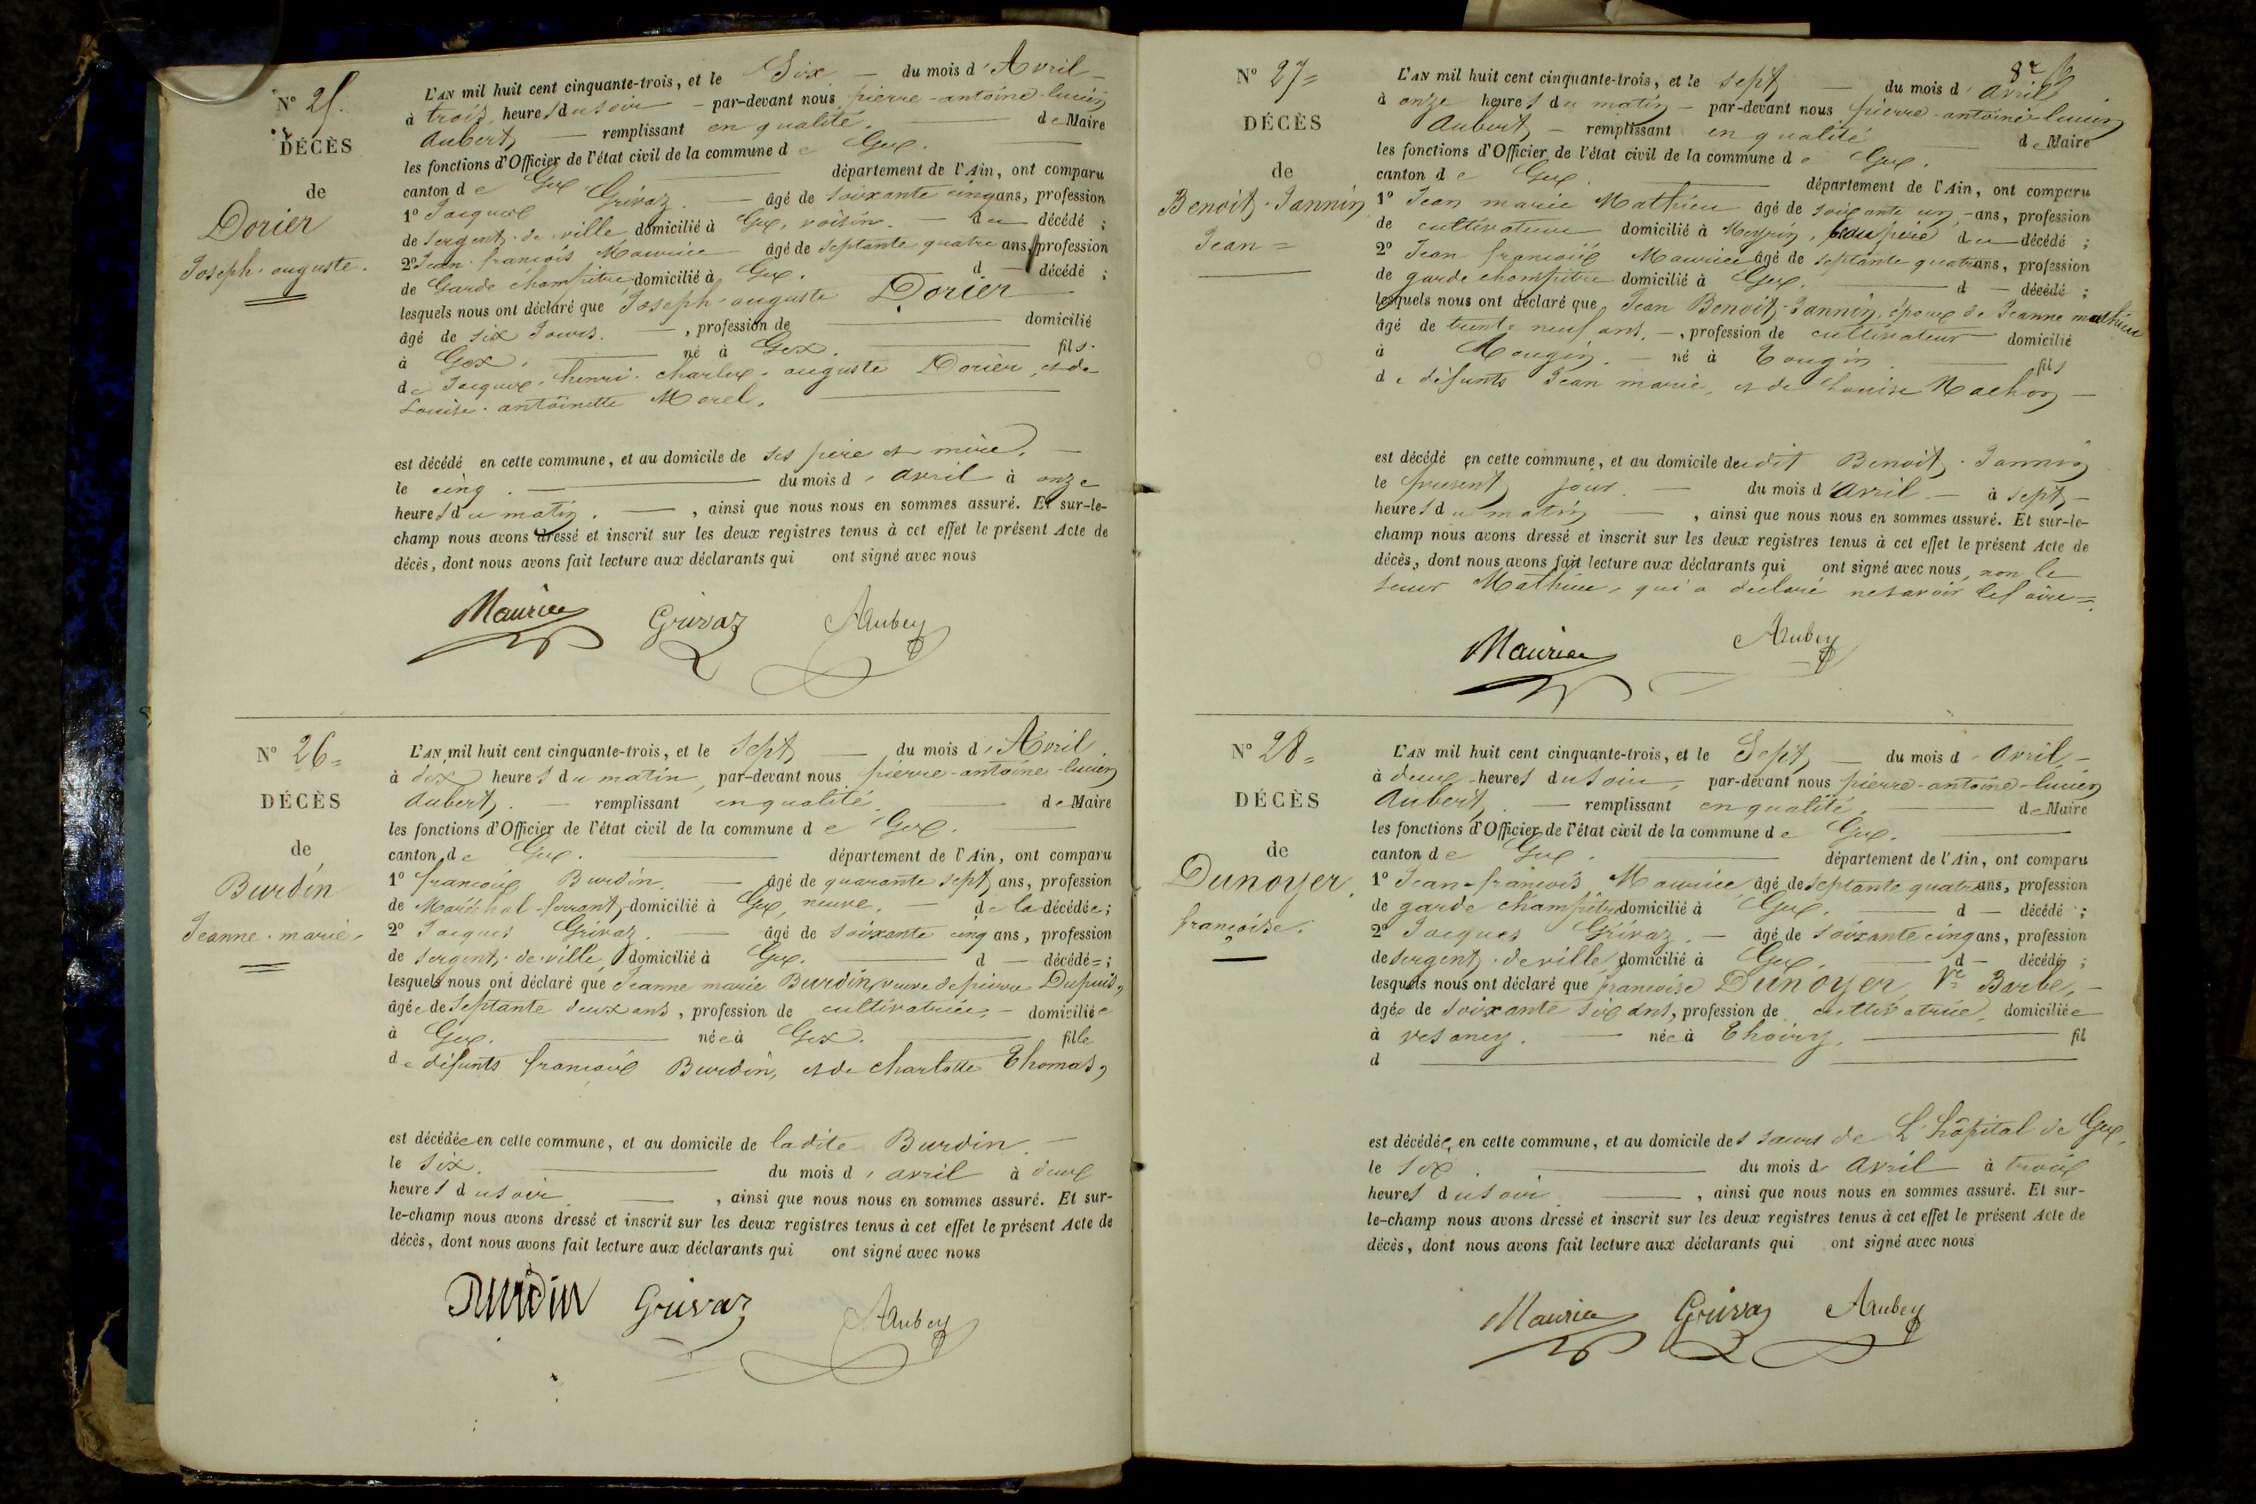 N° 25.
DÉCÈS
de
Dorier
Joseph-auguste.
L'AN mil huit cent cinquante-trois, et le Six — du mois d'Avril —
à trois heures du soir — par-devant nous pierre-antoine-lucien
Aubert — remplissant en qualité. — de Maire
les fonctions d'Officier de l'état civil de la commune de Gex.
canton de Gex — département de l'Ain, ont comparu
1° Jacques Grivaz. — âgé de soixante cinq ans, profession
de sergent-de-ville domicilié à Gex, voisin. — du décédé ;
2° Jean-françois Maurice âgé de septante quatre ans, profession
de Garde champêtre domicilié à Gex. — d — décédé ;
lesquels nous ont déclaré que Joseph-auguste Dorier —
âgé de six Jours. — , profession de — domicilié
à Gex. — né à Gex. — fils.
de Jacques-henri-charles-auguste Dorier, et de
Louise-antoinette Morel. —
est décédé en cette commune, et au domicile de ses père et mère. —
le cinq. — du mois d'avril à onze
heures du matin. — , ainsi que nous nous en sommes assuré. Et sur-le-
champ nous avons dressé et inscrit sur les deux registres tenus à cet effet le présent Acte de
décès, dont nous avons fait lecture aux déclarants qui ont signé avec nous
Maurice Grivaz Aubert
N° 26=
DÉCÈS
de
Burdin
Jeanne-marie.
L'AN mil huit cent cinquante-trois, et le Sept — du mois d'Avril.
à dix heures du matin, par-devant nous pierre-antoine-lucien
Aubert. — remplissant en qualité. — de Maire
les fonctions d'Officier de l'état civil de la commune de Gex. —
canton de Gex. — département de l'Ain, ont comparu
1° françois Burdin. — âgé de quarante sept ans, profession
de Maréchal-ferrant domicilié à Gex, neuve. — de la décédée ;
2° Jacques Grivaz. — âgé de soixante cinq ans, profession
de sergent-de-ville, domicilié à Gex. — d — décédé= ;
lesquels nous ont déclaré que Jeanne marie Burdin, veuve de pierre Dupuis,
âgée de septante deux ans, profession de cultivatrice, — domiciliée
à Gex. — née à Gex. — fille
de défunts françois Burdin, et de charlotte Thomas,
est décédée en cette commune, et au domicile de ladite Burdin. —
le six. — du mois d'avril à deux
heures du soir — , ainsi que nous nous en sommes assuré. Et sur-
le-champ nous avons dressé et inscrit sur les deux registres tenus à cet effet le présent Acte de
décès, dont nous avons fait lecture aux déclarants qui ont signé avec nous
Burdin Grivaz Aubert
8e
N° 27=
DÉCÈS
de
Benoit-Jannin
Jean=
L'AN mil huit cent cinquante-trois, et le sept — du mois d'avril
à onze heures du matin — par-devant nous pierre-antoine-lucien
Aubert — remplissant en qualité — de Maire
les fonctions d'Officier de l'état civil de la commune de Gex. —
canton de Gex. — département de l'Ain, ont comparu
1° Jean marie Mathieu âgé de soixante un, — ans, profession
de cultivateur domicilié à Meyrin, beau père du décédé ;
2° Jean françois Maurice âgé de septante quatre ans, profession
de garde champêtre domicilié à Gex. — d — décédé ;
lesquels nous ont déclaré que Jean Benoit-Jannin, époux de Jeanne mathieu
âgé de trente neuf ans. —, profession de cultivateur domicilié
à Mougin. — né à Tougin — fils
de défunts Jean marie, et de Louise Machon —
est décédé en cette commune, et au domicile dudit Benoit-Jannin
le présent jour. — du mois d'avril — à sept —
heures du matin — , ainsi que nous nous en sommes assuré. Et sur-le-
champ nous avons dressé et inscrit sur les deux registres tenus à cet effet le présent Acte de
décès, dont nous avons fait lecture aux déclarants qui ont signé avec nous, non le
sieur Mathieu, qui a déclaré ne savoir le faire=
Maurice Aubert
N° 28=
DÉCÈS
de
Dunoyer
françoise.
L'AN mil huit cent cinquante-trois, et le Sept — du mois d'avril —
à deux heures du soir, par-devant nous pierre-antoine-lucien
Aubert. — remplissant en qualité. — de Maire
les fonctions d'Officier de l'état civil de la commune de Gex. —
canton de Gex. — département de l'Ain, ont comparu
1° Jean-françois Maurice âgé de septante quatre ans, profession
de garde champêtre domicilié à Gex. — d — décédé ;
2° Jacques Grivaz. — âgé de soixante cinq ans, profession
de sergent-de ville, domicilié à Gex. — d — décédé ;
lesquels nous ont déclaré que françoise Dunoyer, Ve Barbe, —
âgée de soixante six ans, profession de cultivatrice, domiciliée
à vesancy. — née à Thoiry. — fil
d —
est décédée, en cette commune, et au domicile des sœurs de L'hôpital de Gex,
le six. — du mois d'avril à trois
heures du soir — , ainsi que nous nous en sommes assuré. Et sur-
le-champ nous avons dressé et inscrit sur les deux registres tenus à cet effet le présent Acte de
décès, dont nous avons fait lecture aux déclarants qui ont signé avec nous
Maurice Grivaz Aubert